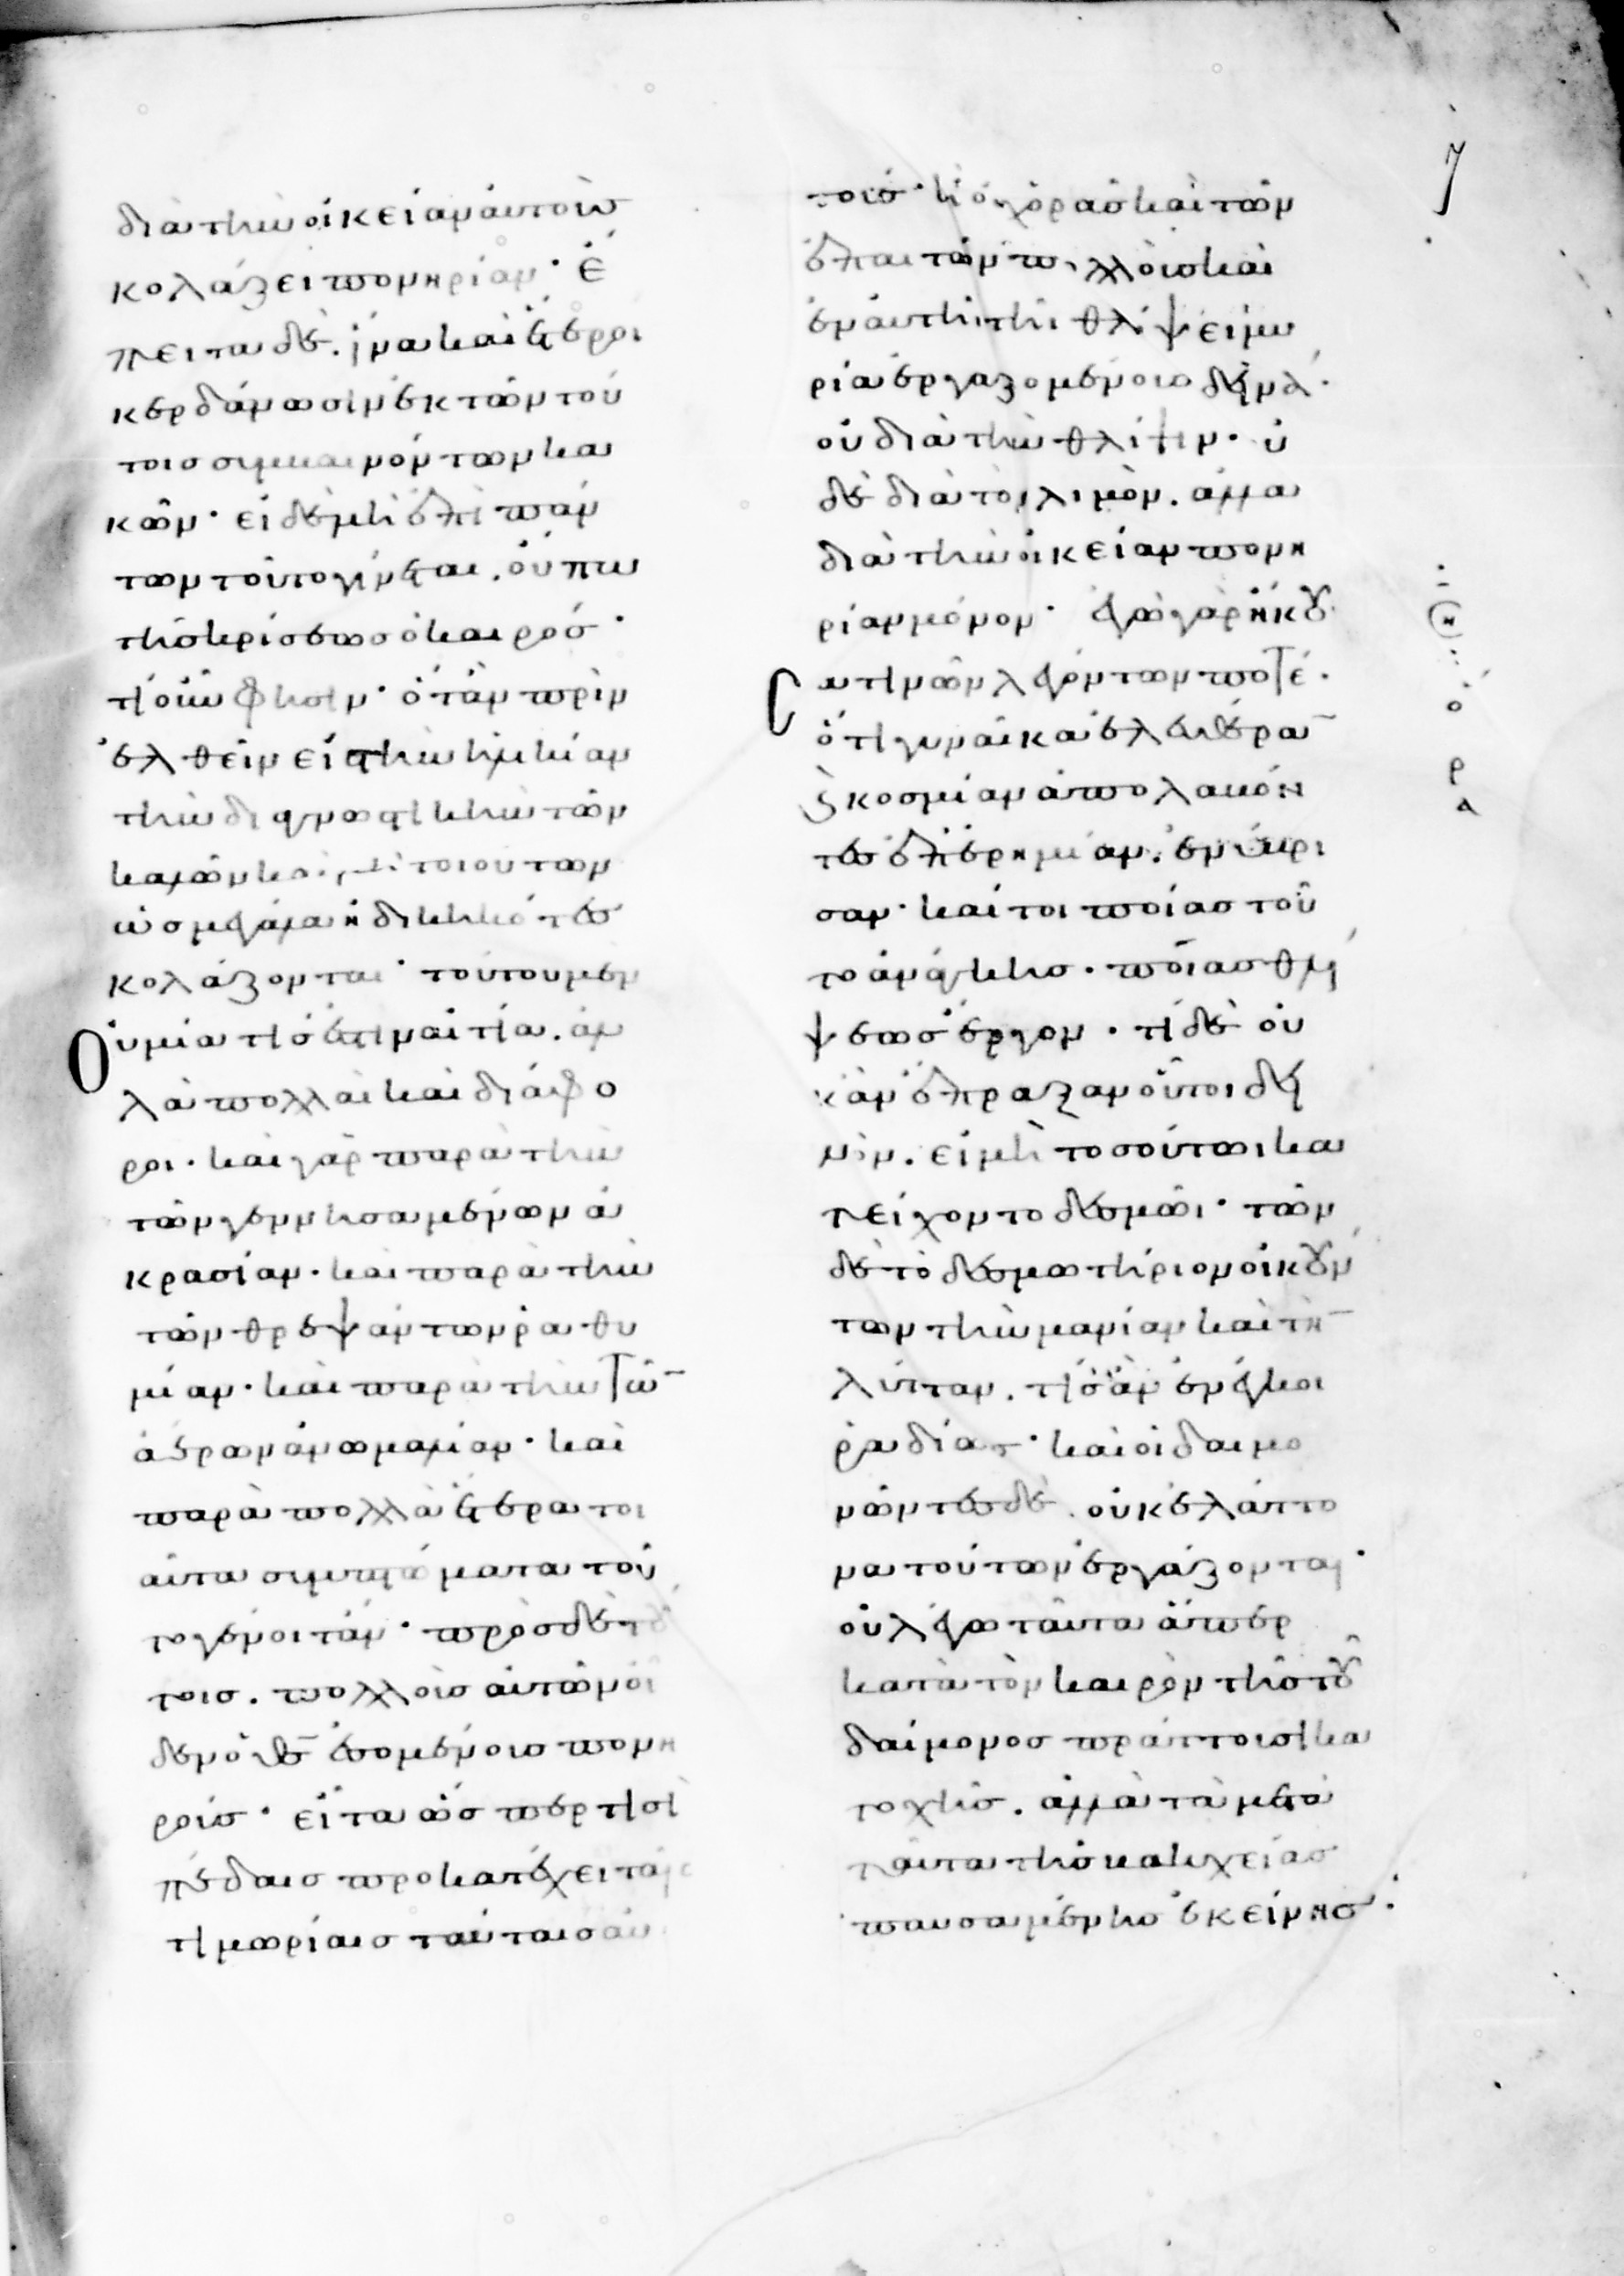 διὰ τὴν οἰκείαν αὐτοὺς
κολάζει πονηρίαν· ἔ
πειτα δὲ. ἵνα καὶ ἕτεροι
κερδάνωσιν ἐκ τῶν τού
τοις συμβαινόντων κα
κῶν· εἰ δὲ μὴ ἐπὶ πάν
των τοῦτο γίνεται. οὔπω
τῆς κρίσεως ὁ καιρός·
τί οὖν φησιν· ὅταν πρὶν
ἐλθεῖν εἰς τὴν ἡλικίαν
τὴν διαγνωστικὴν τῶν
καλῶν καὶ μὴ τοιούτων
ὡς μεγάλα ἠδικηκότες
κολάζονται· τούτου μὲν
Οὐ μία τίς ἐστιν αἰτία. ἀλ
λὰ πολλαὶ καὶ διάφο
ροι· καὶ γὰρ παρὰ τὴν
τῶν γεννησαμένων ἀ
κρασίαν· καὶ παρὰ τὴν
τῶν θρεψάντων ῥαθυ
μίαν· καὶ παρὰ τὴν τῶν
ἀέρων ἀνωμαλίαν· καὶ
παρὰ πολλὰ ἕτερα τοι
αῦτα συμπτώματα τοῦ
το γένοιτ' ἄν· πρὸς δὲ τού
τοις. πολλοὺς αὐτῶν οἶ
δεν ὁ θς ἐσομένους πονη
ρούς· εἶτα ὥσπερ τισὶ
πέδαις προκατέχει ταῖς
τιμωρίαις ταύταις αὐ
τούς· ἢ οὐχ ὁρᾷς καὶ τῶν
ἐπαιτῶν πολλοὺς καὶ
ἐν αὐτῇ τῇ θλίψει μυ
ρία ἐργαζομένους δεινά·
οὐ διὰ τὴν θλίψιν· οὐ
δὲ διὰ τὸν λιμὸν. ἀλλὰ
διὰ τὴν οἰκείαν πονη
ρίαν μόνον· ἐγὼ γὰρ ἤκου
σα τινῶν λεγόντων ποτέ·
ὅτι γυναῖκα ἐλευθέραν
καὶ κοσμίαν ἀπολαβόν
τες ἐπ' ἐρημίαν. ἐνύβρι
σαν· καίτοι ποίας τοῦ
το ἀνάγκης. ποίας θλί
ψεως ἔργον· τί δὲ οὐ
κ ἂν ἔπραξαν οὗτοι δει
νὸν. εἰ μὴ τοσούτωι κα
τείχοντο δεσμῶι· τῶν
δὲ τὸ δεσμωτήριον οἰκούν
των τὴν μανίαν καὶ τὴν
λύτταν. τίς ἂν ἐνέγκοι
ῥαδίως· καὶ οἱ δαιμο
νῶντες δὲ. οὐκ ἐλάττο
να τούτων ἐργάζονται·
οὐ λέγω ταῦτα ἅπερ
κατὰ τὸν καιρὸν τῆς τοῦ
δαίμονος πράττουσι κα
τοχῆς. ἀλλὰ τὰ μετὰ
ταῦτα τῆς βακχείας
παυσαμένης ἐκείνης·